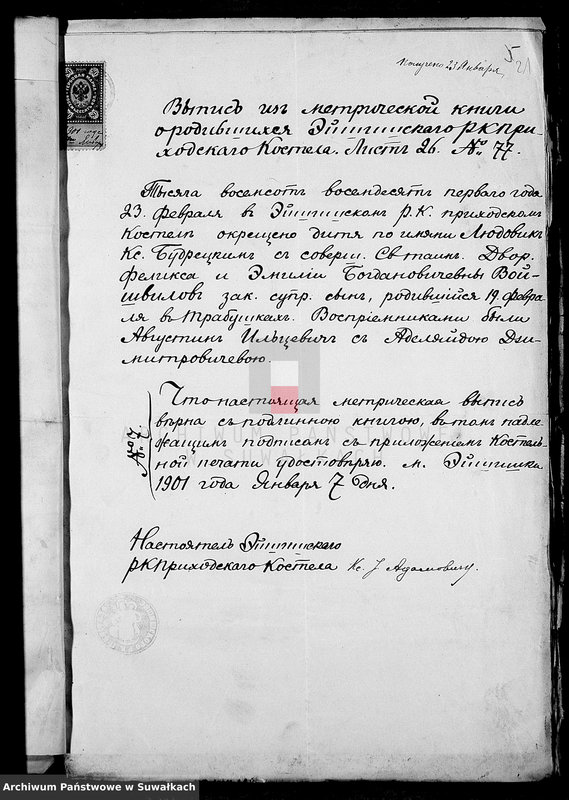 получено 23 Января
5
21
Вѣпись изъ метрической книги
о родившихся Эйшишскаго РКПри-
ходскаго Костела. Листъ 26. № 77.
Тысяча восемсотъ восемдесятъ перваго года
23. Февраля в Эйшишскомъ Р. К. приходскомъ
Костелѣ окрещено дитя по имяни Людовикъ
Кс. Будрецкимъ съ соверш. Св. таин. Двор.
Феликса и Эмиліи Богдановичевны Вой-
швиловъ зак. супр. сынъ, родившійся 19 Февра-
ля въ Трабушкахъ. Воспріемниками были
Августинъ Ильцевичъ съ Аделяйдою Дзи-
митровичевою.
№ 7.
Что настоящая метрическая выпись
вѣрна съ подлинною книгою, въ томъ надле-
жащимъ подписомъ съ приложеніемъ Костель-
ной печати удостовѣряю. м. Эйшишки
1901 года Января 7 дня.
Настоятель Эйшишскаго
РКПриходскаго Костела Кс. J. Адамовичъ.
Archiwum Państwowe w Suwałkach